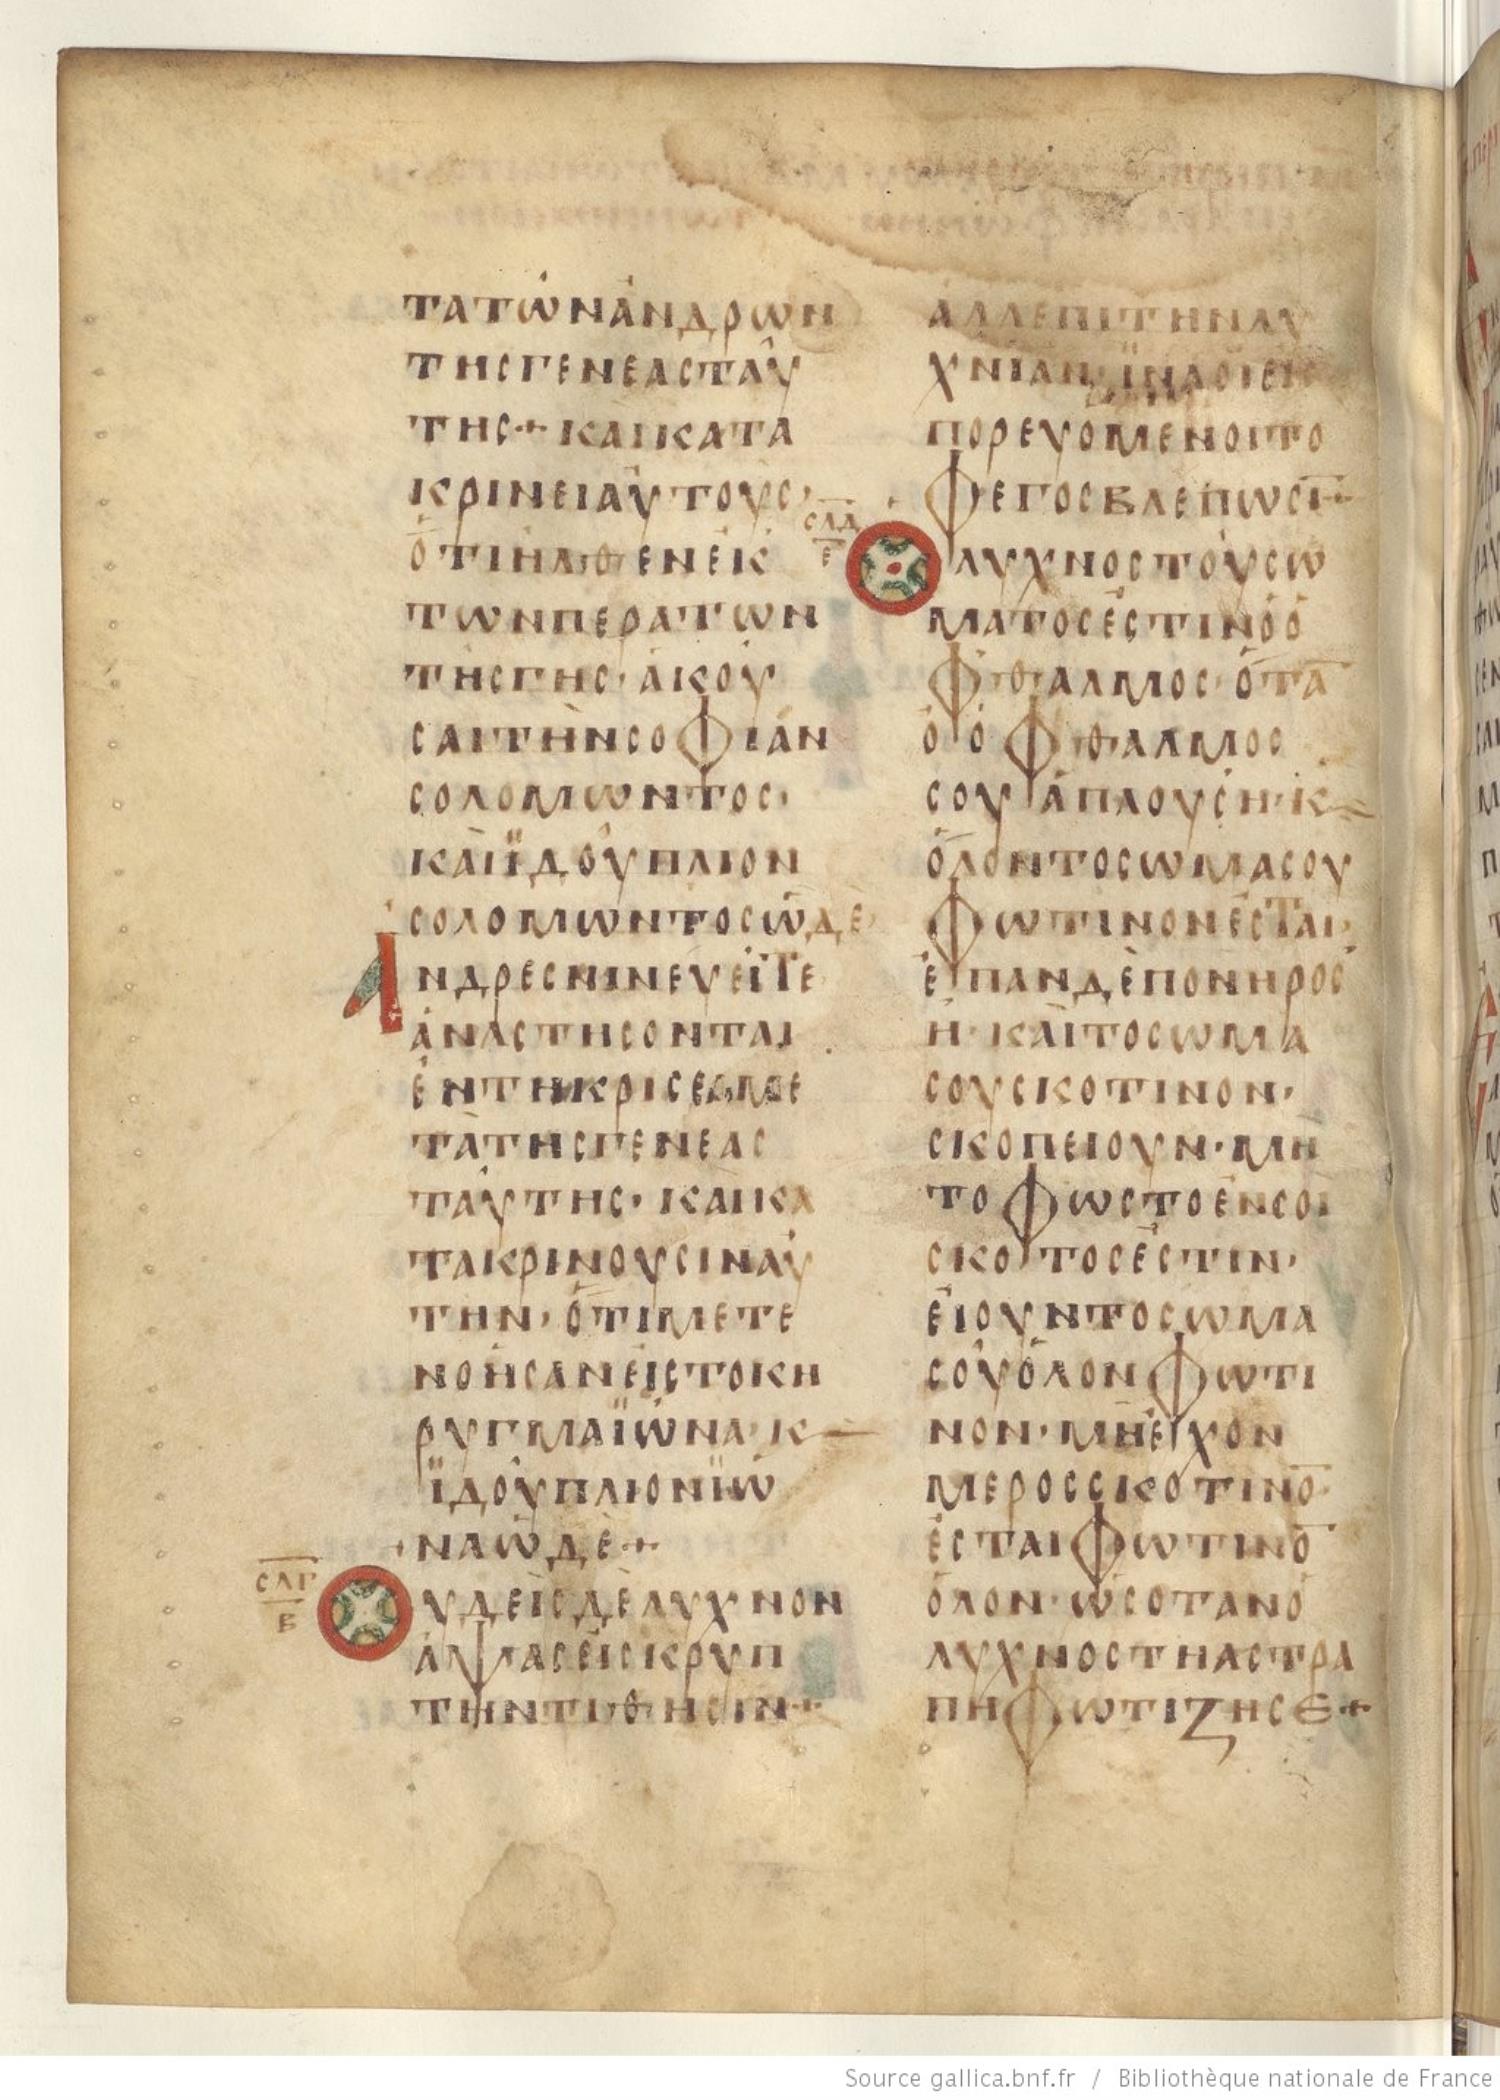 ΤΑΤῶΝἈΝΔΡΩΝ
ΤΗϹΓΕΝΕΑϹΤΑΥ
ΤΗϹ+ΚΑΙΚΑΤΑ
ΚΡΙΝΕΙΑΥΤΟΥϹ·
ὍΤΙΗΛΘΕΝἘΚ
ΤΩΝΠΕΡΑΤΩΝ
ΤΗϹΓΗϹ·ἀΚΟΥ
ϹΑΙΤῊΝϹΟΦΙΑΝ
ϹΟΛΟΜΩΝΤΟϹ·
ΚΑῚΪΔΟῪΠΛΙΟΝ
ϹΟΛΟΜΩΝΤΟϹὧΔΕ·
ΑΝΔΡΕϹΝΙΝΕΥΕΙΤΕ
ἀΝΑϹΤΗϹΟΝΤΑΙ
ἐΝΤΗΚΡΙϹΕΙΜΕ
ΤᾺΤΗϹΓΕΝΕΑϹ
ΤΑΥΤΗϹ·ΚΑΙΚΑ
ΤΑΚΡΙΝΟΥϹΙΝΑΥ
ΤΗΝ·ὍΤΙΜΕΤΕ
ΝΟΗϹΑΝΕΙϹΤΟΚΗ
ΡΥΓΜΑΪΩΝΑ·Κ
ΪΔΟΥΠΛΙΟΝΪΩ
ΝΑὧΔΕ+
ϹΛΓ
Β
ΟΥΔΕΙϹΔῈΛΥΧΝΟΝ
ἀΨΑϹΕΙϹΚΡΥΠ
ΤΗΝΤΙΘΗϹΙΝ+
ΑΛΛΕΠΙΤΗΝΛΥ
ΧΝΙΑΝ·ΪΝΑΟΙΕΙϹ
ΠΟΡΕΥΟΜΕΝΟΙΤΟ
ΦΕΓΟϹΒΛΕΠΩϹΙ+
ϹΛΔ
Ε
ΟΛΥΧΝΟϹΤΟΥϹΩ
ΜΑΤΟϹἐϹΤΙΝὁὀ
ΦΘΑΛΜΟϹ·ὍΤΑ̅
ὁὀΦΘΑΛΜΟϹ
ϹΟΥἁΠΛΟΥϹΗ·Κ
ὅΛΟΝΤΟϹΩΜΑϹΟΥ
ΦΩΤΙΝΟΝἐϹΤΑΙ·
ἐΠΑΝΔῈΠΟΝΗΡΟϹ
Η·ΚΑΙΤΟϹΩΜΑ
ϹΟΥϹΚΟΤΙΝΟΝ·
ϹΚΟΠΕΙΟΥΝ·ΜΗ
ΤΟΦΩϹΤΟἐΝϹΟΙ
ϹΚΟΤΟϹἐϹΤΙΝ·
ΕΙΟΥΝΤΟϹΩΜΑ
ϹΟΥὅΛΟΝΦΩΤΙ
ΝΟΝ·ΜΗἐΧΟΝ
ΜΕΡΟϹϹΚΟΤΙΝΟ̅
ἐϹΤΑΙΦΩΤΙΝΟ̅
ὅΛΟΝ·ὡϹΟΤΑΝΟ
ΛΥΧΝΟϹΤΗΑϹΤΡΑ
ΠΗΦΩΤΙΖΗϹΕ+
Source gallica.bnf.fr / Bibliothèque nationale de France